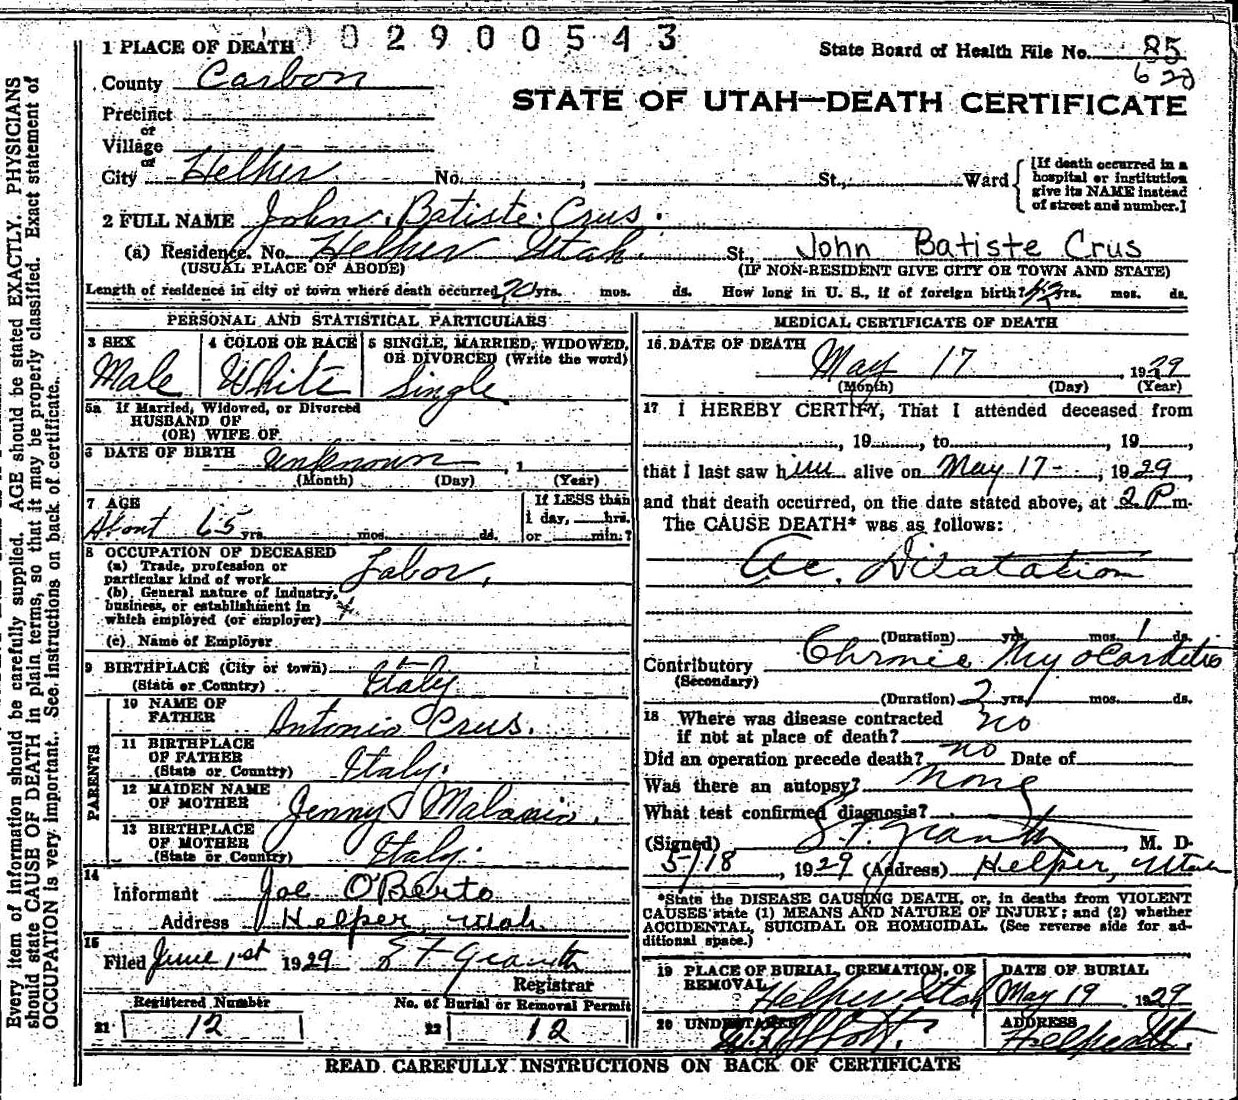 002900543
1 PLACE OF DEATH
State Board of Health File No. 85
620
County Carbon
STATE OF UTAH—DEATH CERTIFICATE
Precinct
or
Village
or
City Helper No. , St., Ward
[If death occurred in a
hospital or institution
give its NAME instead
of street and number.]
2 FULL NAME John Batiste Crus.
(a) Residence. No. Helper Utah. St., John Batiste Crus
(USUAL PLACE OF ABODE) (IF NON-RESIDENT GIVE CITY OR TOWN AND STATE)
Length of residence in city or town where death occurred 20 yrs. mos. ds. How long in U. S., if of foreign birth? 43 yrs. mos. ds.
PERSONAL AND STATISTICAL PARTICULARS
3 SEX
Male
4 COLOR OR RACE
White
5 SINGLE, MARRIED, WIDOWED,
OR DIVORCED (Write the word)
Single
5a If Married, Widowed, or Divorced
HUSBAND OF
(OR) WIFE OF
6 DATE OF BIRTH unknown , 1
(Month) (Day) (Year)
7 AGE
About 65 yrs. mos. ds.
If LESS than
1 day, hrs.
or min.?
8 OCCUPATION OF DECEASED
(a) Trade, profession or
particular kind of work Labor,
(b) General nature of Industry,
business, or establishment in
which employed (or employer)
(c) Name of Employer
9 BIRTHPLACE (City or town)
(State or Country) Italy
PARENTS
10 NAME OF
FATHER Antonio Crus.
11 BIRTHPLACE
OF FATHER
(State or Country) Italy.
12 MAIDEN NAME
OF MOTHER Jenny
13 BIRTHPLACE
OF MOTHER
(State or Country) Italy.
14
Informant Joe O'Berto
Address Helper, Utah.
15
Filed June 1st 1929
Registrar
Registered Number
21 12
No. of Burial or Removal Permit
22 12
MEDICAL CERTIFICATE OF DEATH
16 DATE OF DEATH
May 17 1929
(Month) (Day) (Year)
17 I HEREBY CERTIFY, That I attended deceased from
, 19 , to , 19 ,
that I last saw him alive on May 17- , 1929,
and that death occurred, on the date stated above, at 2 P m.
The CAUSE DEATH* was as follows:
Ac. Dilatation
(Duration) yrs. mos. 1 ds.
Contributory Chronic Myocarditis
(Secondary)
(Duration) 2 yrs. mos. ds.
18 Where was disease contracted
if not at place of death? no
Did an operation precede death? no Date of
Was there an autopsy? none
What test confirmed diagnosis?
(Signed) , M. D.
5/18 , 1929 (Address) Helper, Utah
*State the DISEASE CAUSING DEATH, or, in deaths from VIOLENT
CAUSES state (1) MEANS AND NATURE OF INJURY; and (2) whether
ACCIDENTAL, SUICIDAL OR HOMICIDAL. (See reverse side for ad-
ditional space.)
19 PLACE OF BURIAL, CREMATION, OR
REMOVAL Helper Utah
DATE OF BURIAL
May 19 1929
20 UNDERTAKER
ADDRESS
READ CAREFULLY INSTRUCTIONS ON BACK OF CERTIFICATE
Every item of information should be carefully supplied. AGE should be stated EXACTLY. PHYSICIANS
should state CAUSE OF DEATH in plain terms, so that it may be properly classified. Exact statement of
OCCUPATION is very important. See instructions on back of certificate.